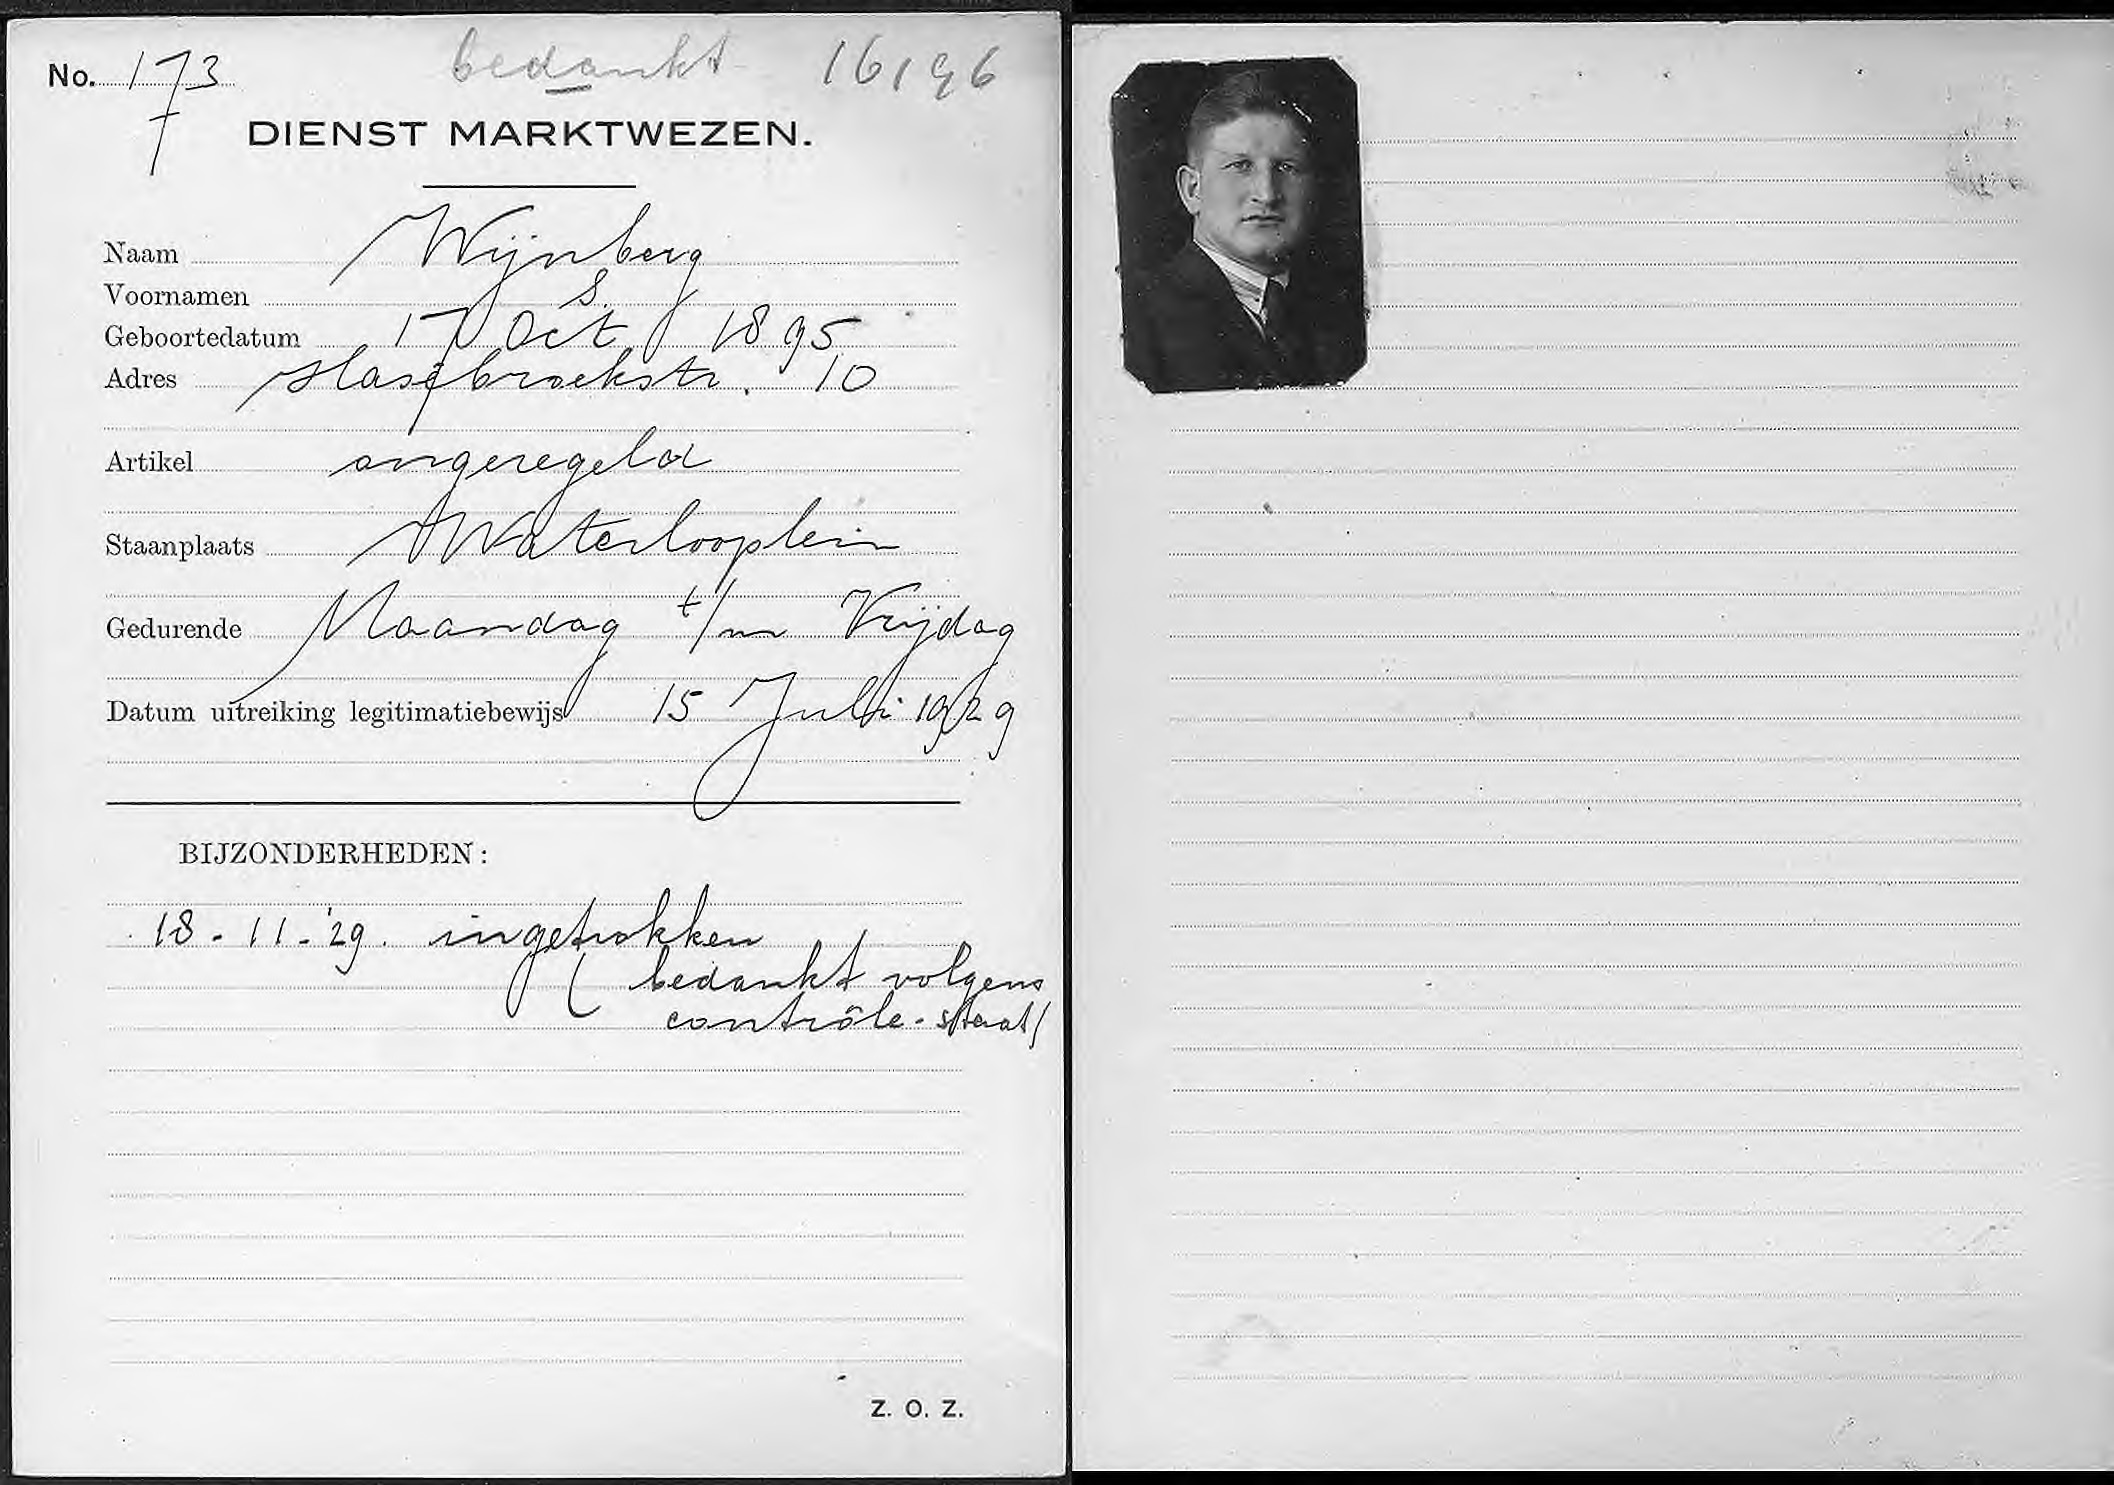 No. 173
bedankt 16196
DIENST MARKTWEZEN.
Naam Wijnberg
Voornamen S.
Geboortedatum 17 Oct 1895
Adres Hasebroekstr. 10
Artikel ongeregeld
Staanplaats Waterlooplein
Gedurende Maandag t/m Vrijdag
Datum uitreiking legitimatiebewijs 15 Juli 1929
BIJZONDERHEDEN:
18-11-'29. ingetrokken
(bedankt volgens
contrôle-staat)
Z. O. Z.